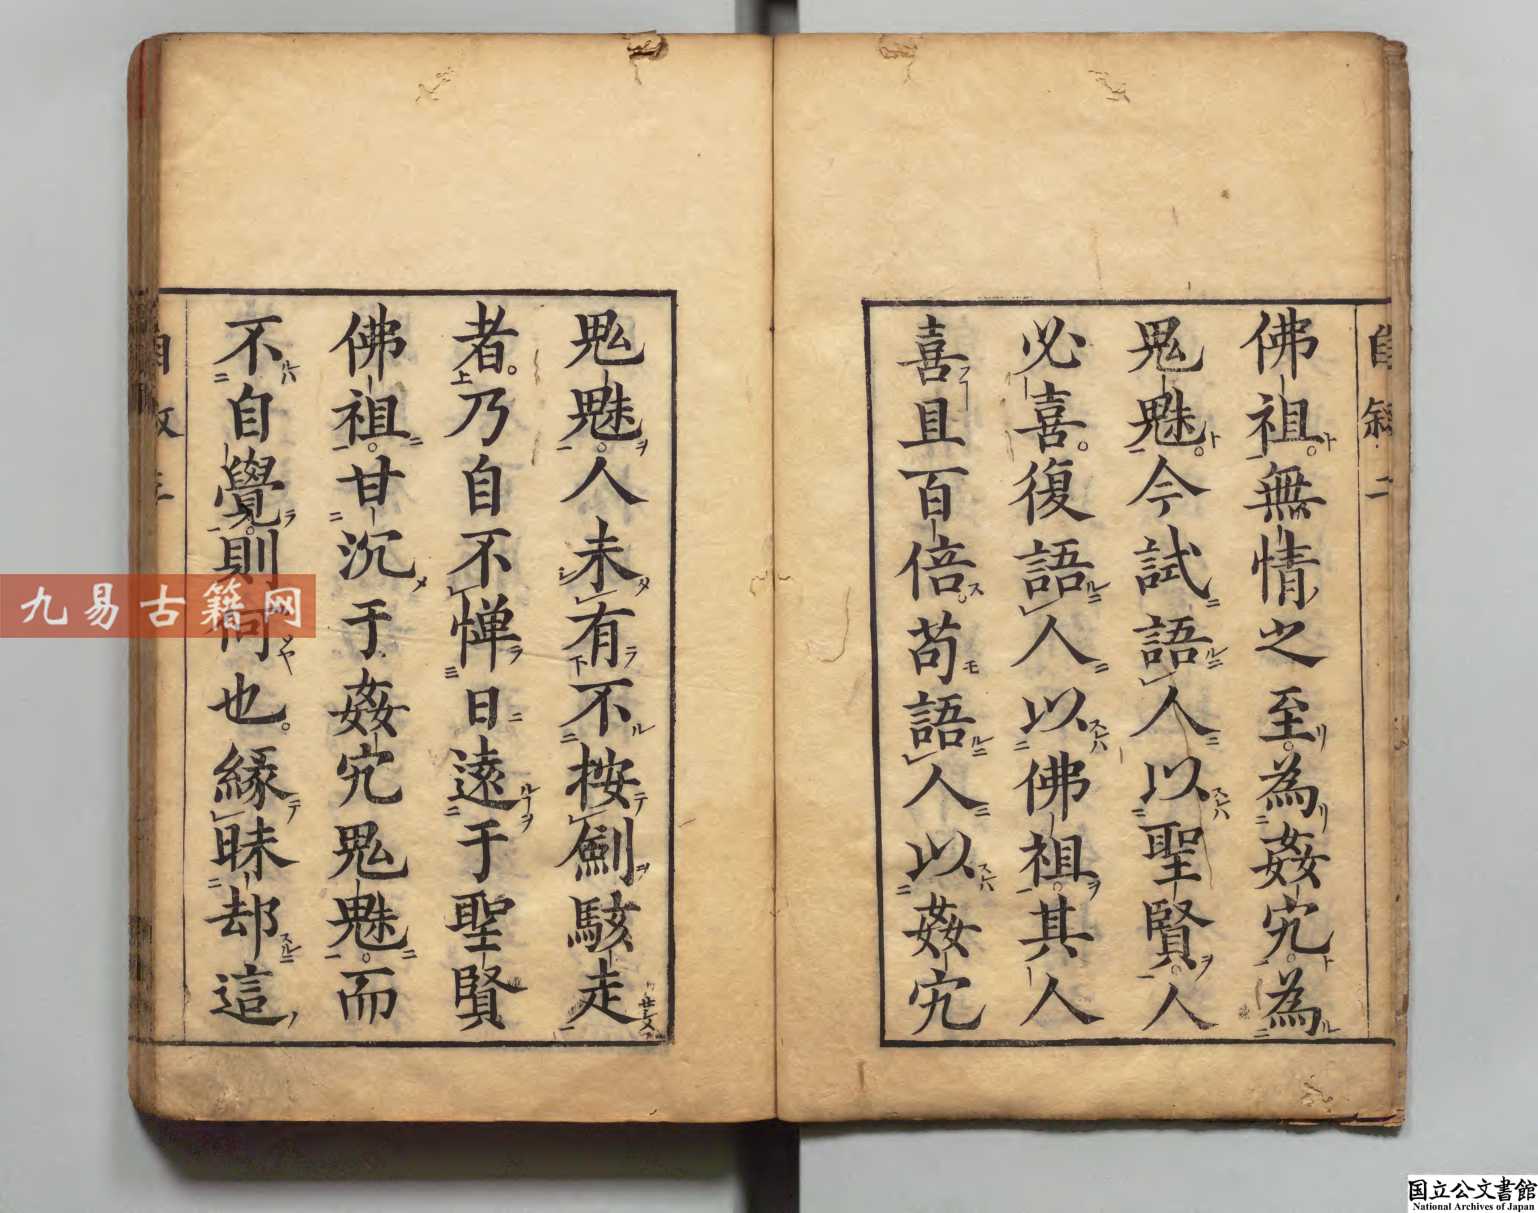 自叙 二
佛祖無情之至為姦宄為
鬼魅今試語人以聖賢人
必喜復語人以佛祖其人
喜且百倍苟語人以姦宄
鬼魅人未有不按劍駭走
者乃自不憚日遠于聖賢
佛祖甘沉于姦宄鬼魅而
不自覺則何也緣昧却這
九易古籍网
国立公文書館
National Archives of Japan